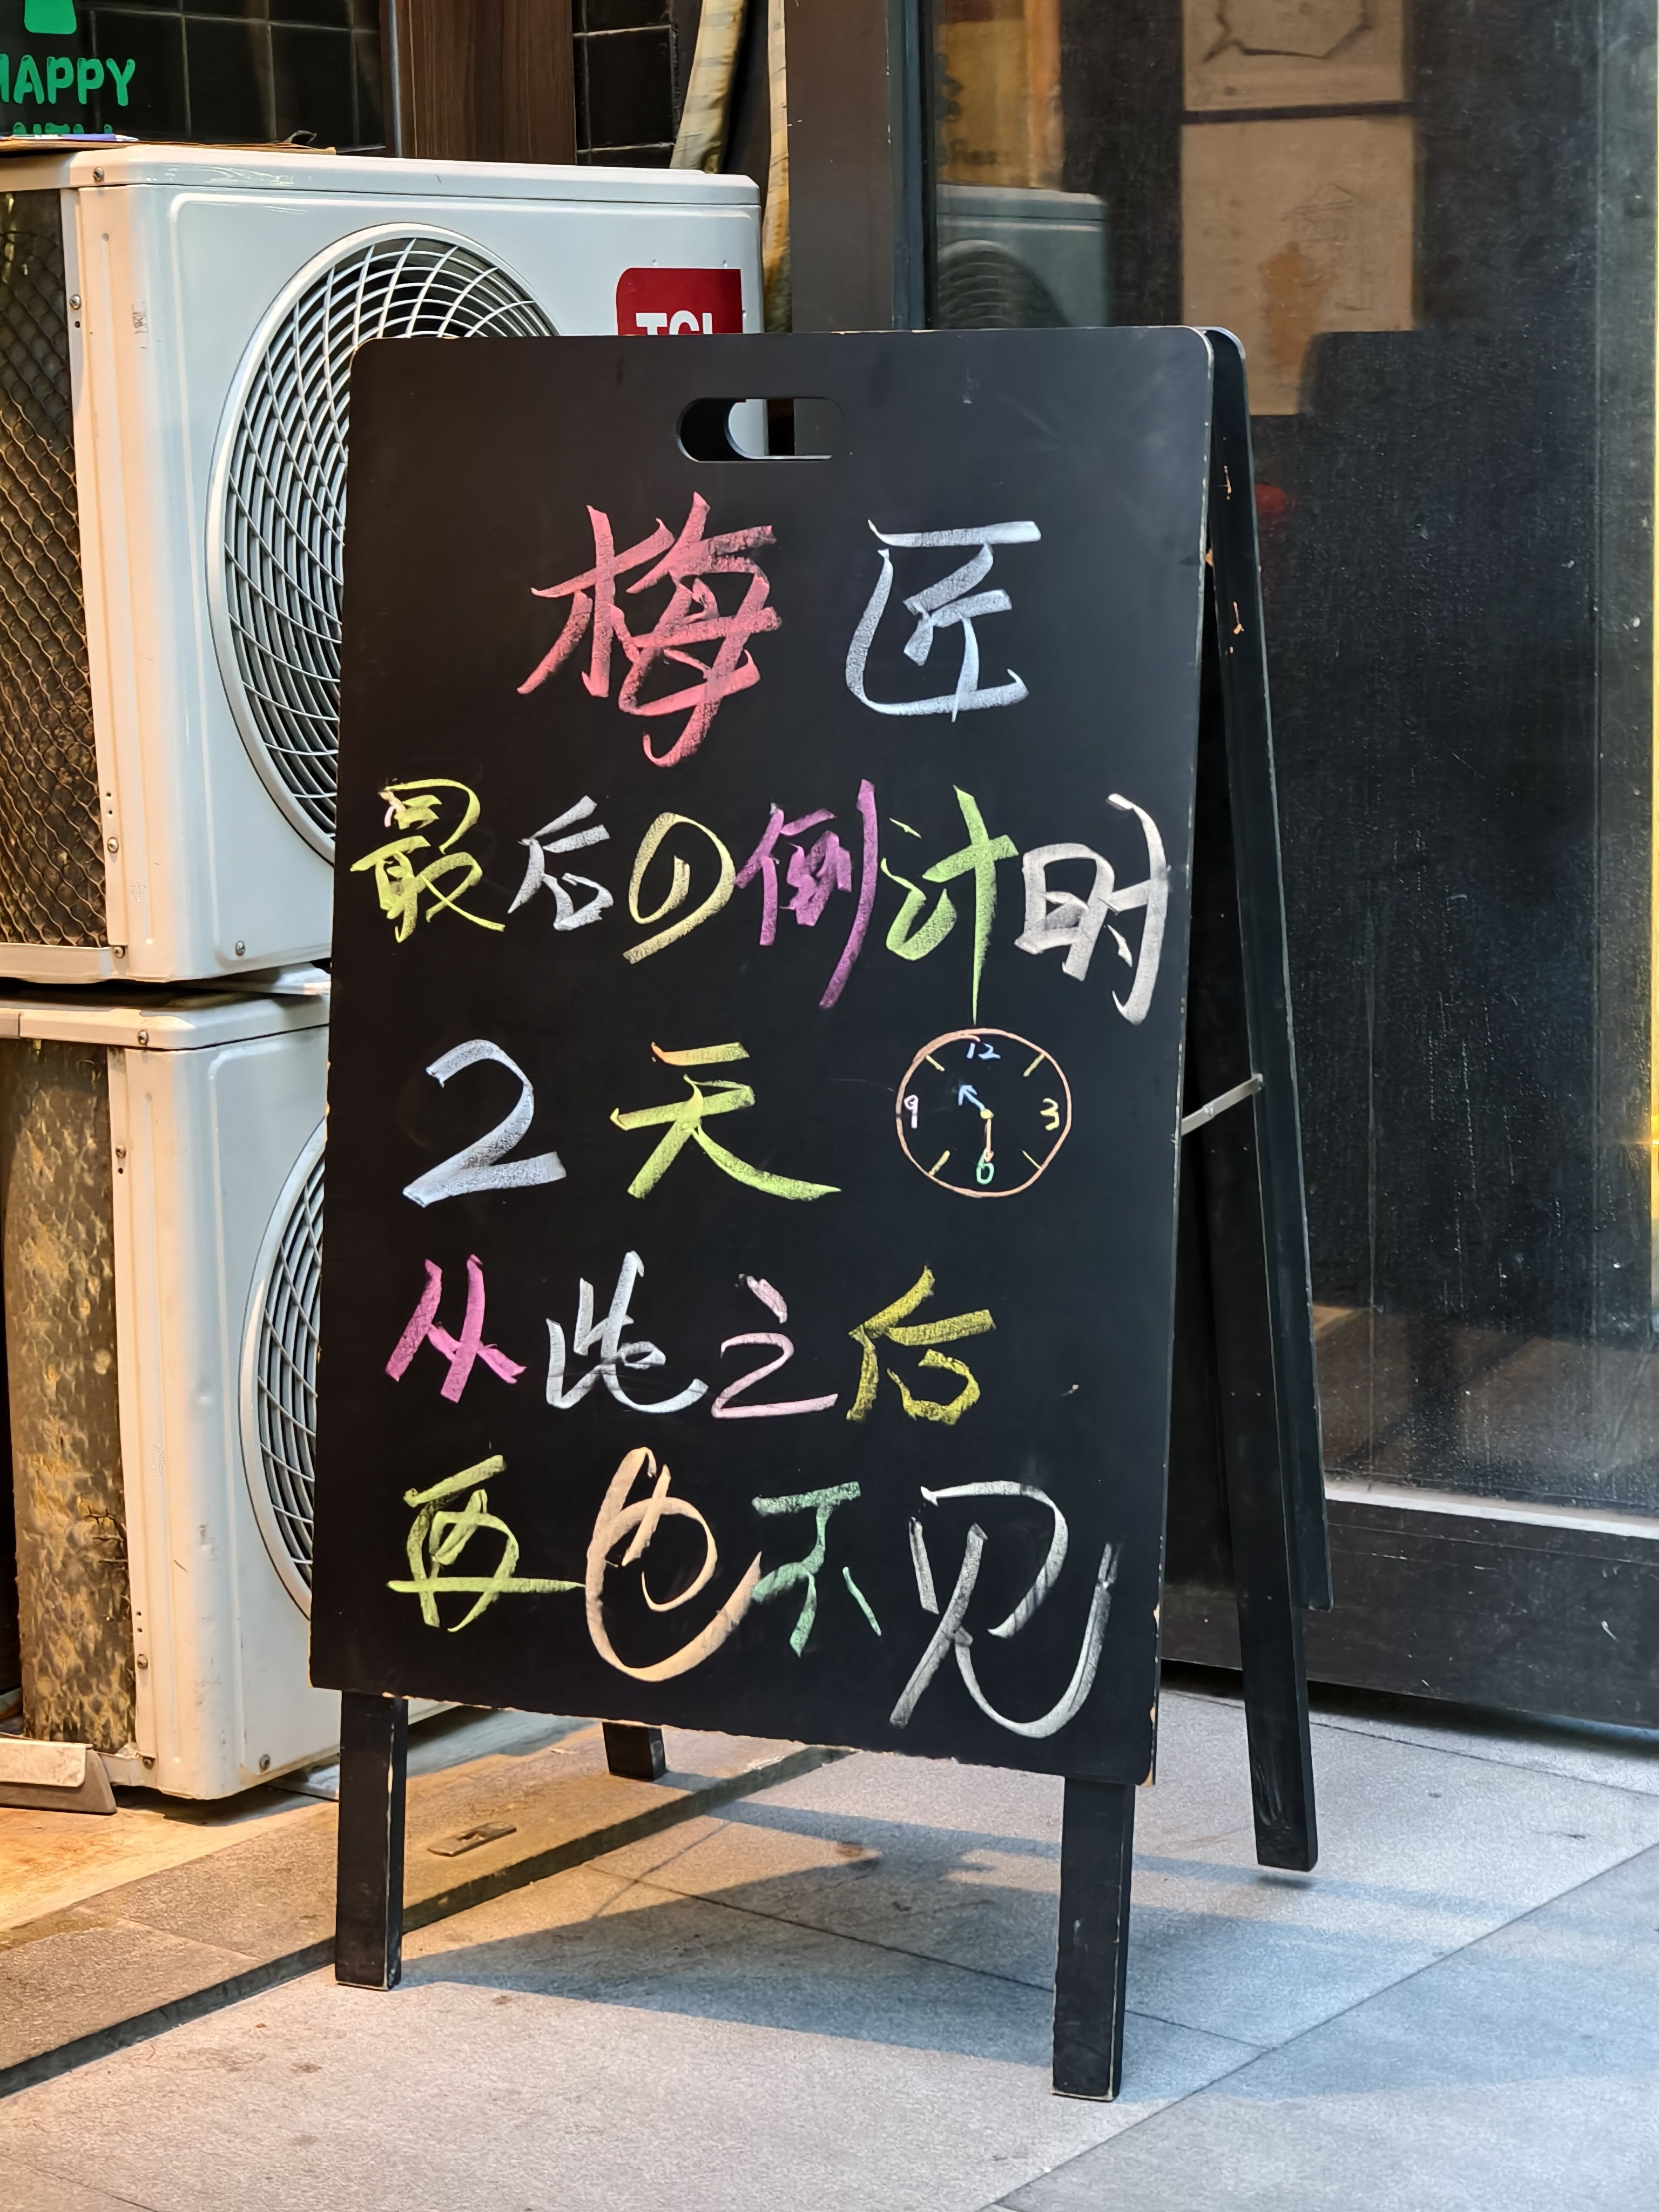 HAPPY
TCL
梅匠
最后の倒计时
2天
12
9 3
6
从此之后
再也不见